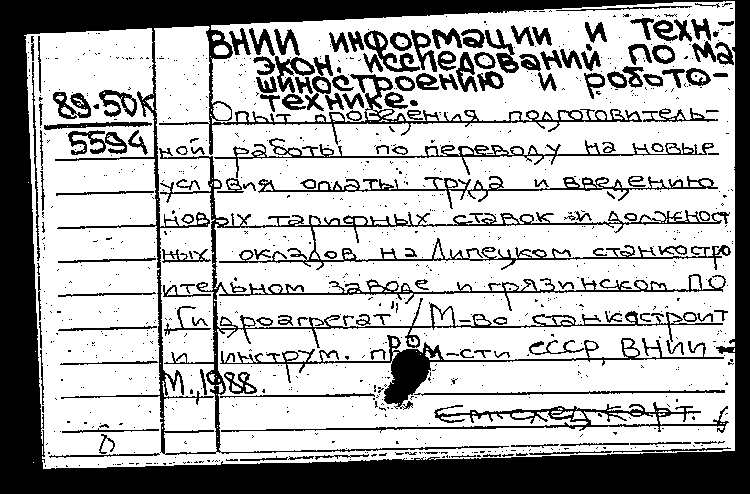 ВНИИ информации и техн.-
экон. исследований по ма
шиностроению и робото-
технике.
89-50К
5594
Опыт проведения подготовитель-
ной работы по переводу на новые
условия оплаты труда и введению
новых тарифных ставок и должност
ных окладов на Липецком станкостро
ительном заводе и грязинском ПО
„Гидроагрегат" / М-во станкостроит
и инструм. пром-сти СССР, ВНИИ -
М., 1988.
след карт.